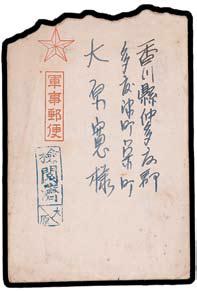 香川縣仲多度郡
多度津町
大原
様
軍事郵便
検閲済